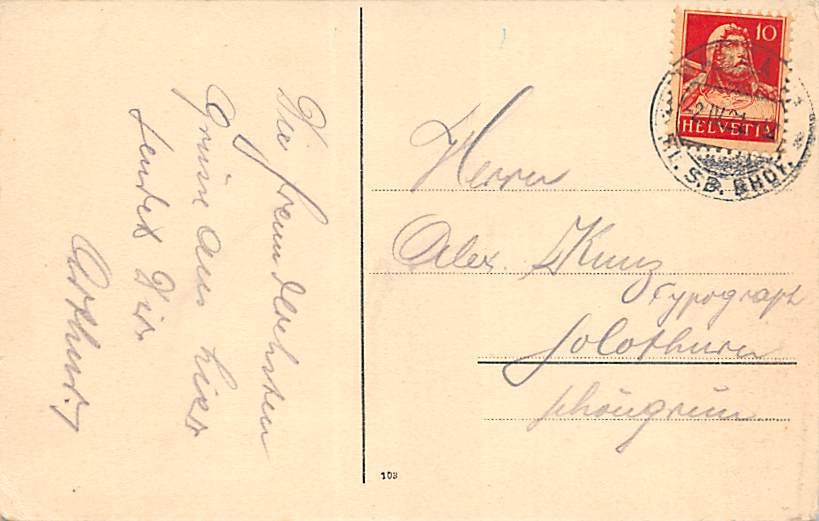 Die freundlichsten
Grüsse aus hier
sendet Dir
Arthur.
10
HELVETIA
S.B. BHOF.
Herrn
Alex. Kunz
Typograph
Solothurn
Schöngrün
103